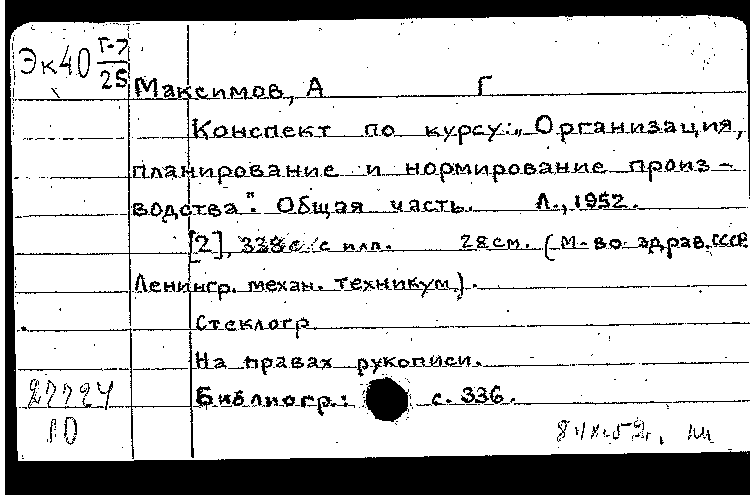 Эк40 Г-7
25
Максимов, А Г
Конспект по курсу: „Организация,
планирование и нормирование произ-
водства". Общая часть. Л., 1952.
[2], 338 с. с илл. 28 см. (М-во здрав. СССР.
Ленингр. механ. техникум).
Стеклогр.
На правах рукописи.
Библиогр.: с. 336.
27724
10